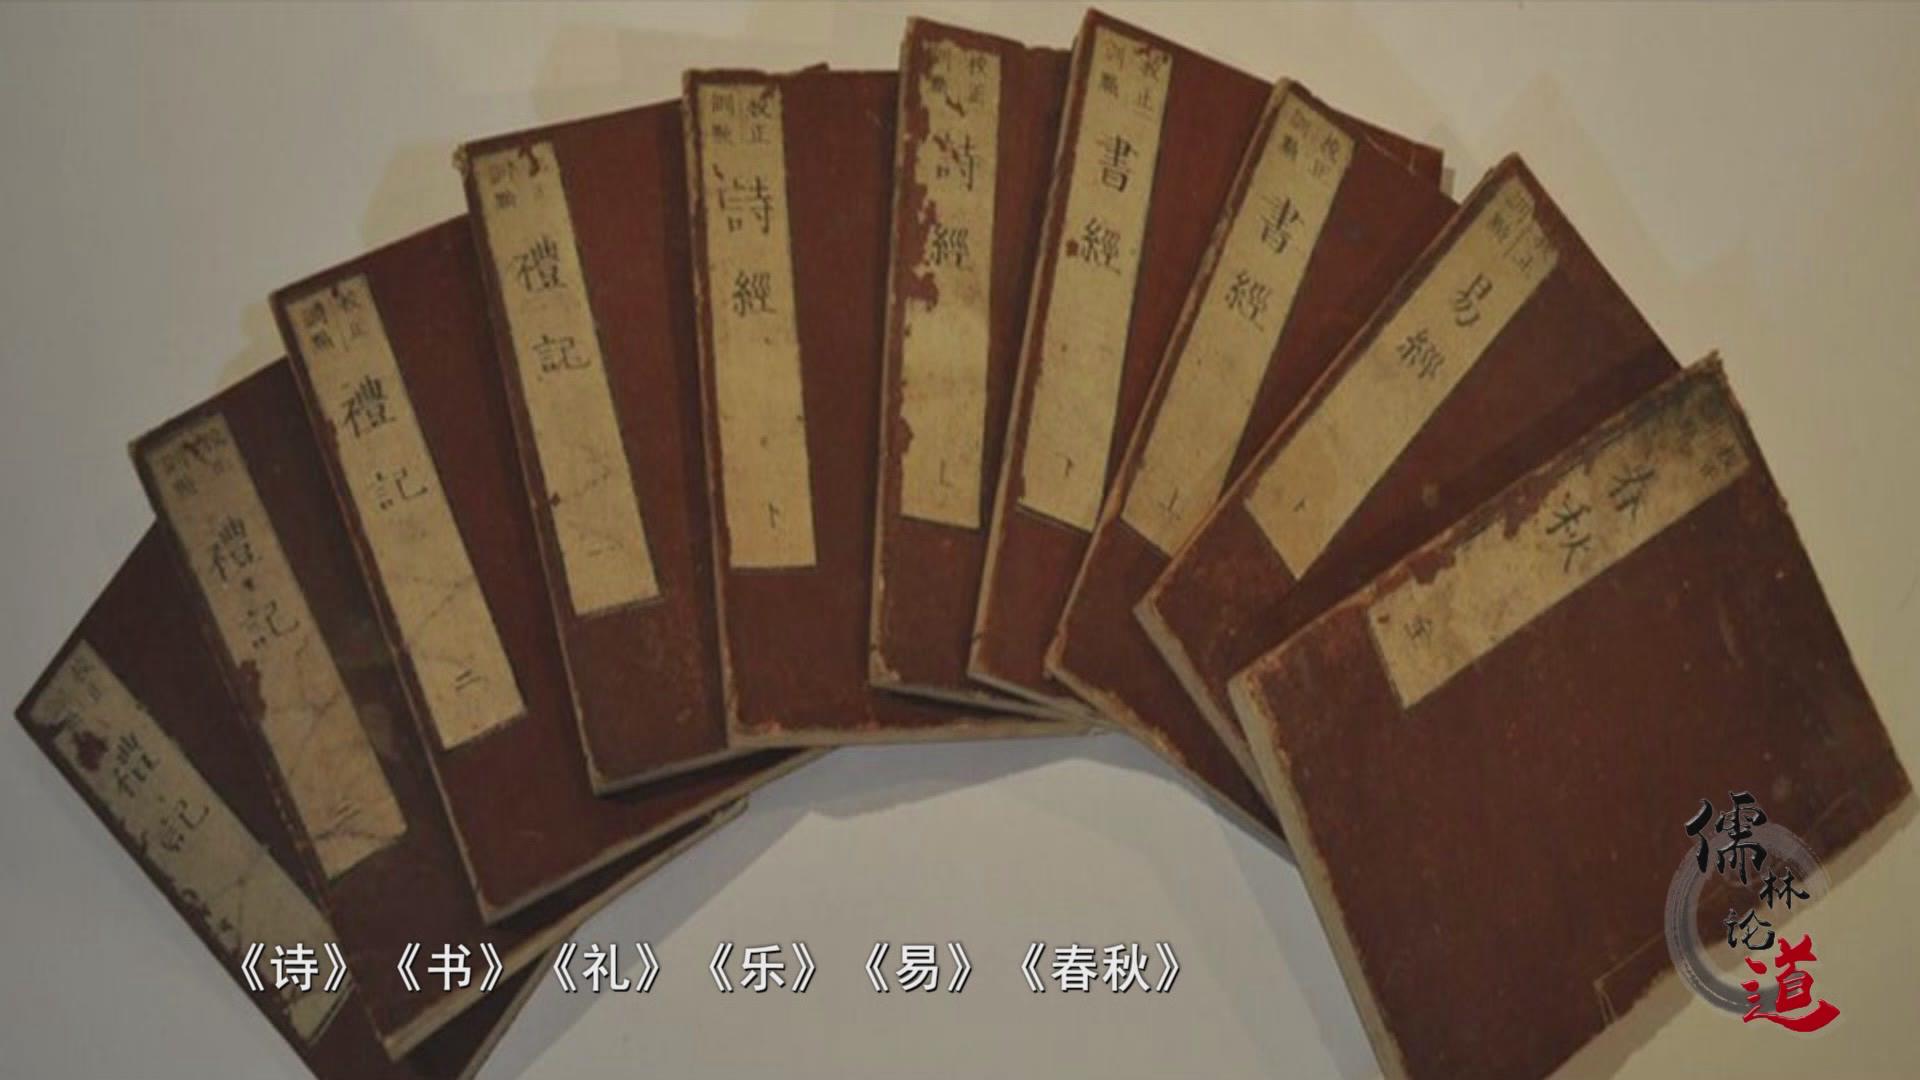 校正
禮記
禮記
三
校正
訓點
禮記
二
訓點
禮記
一
校正
訓點
詩經
下
校正
訓點
詩經
上
校正
訓點
書經
下
校正
訓點
書經
上
訓點
易經
春秋
《诗》《书》《礼》《乐》《易》《春秋》
儒林论道